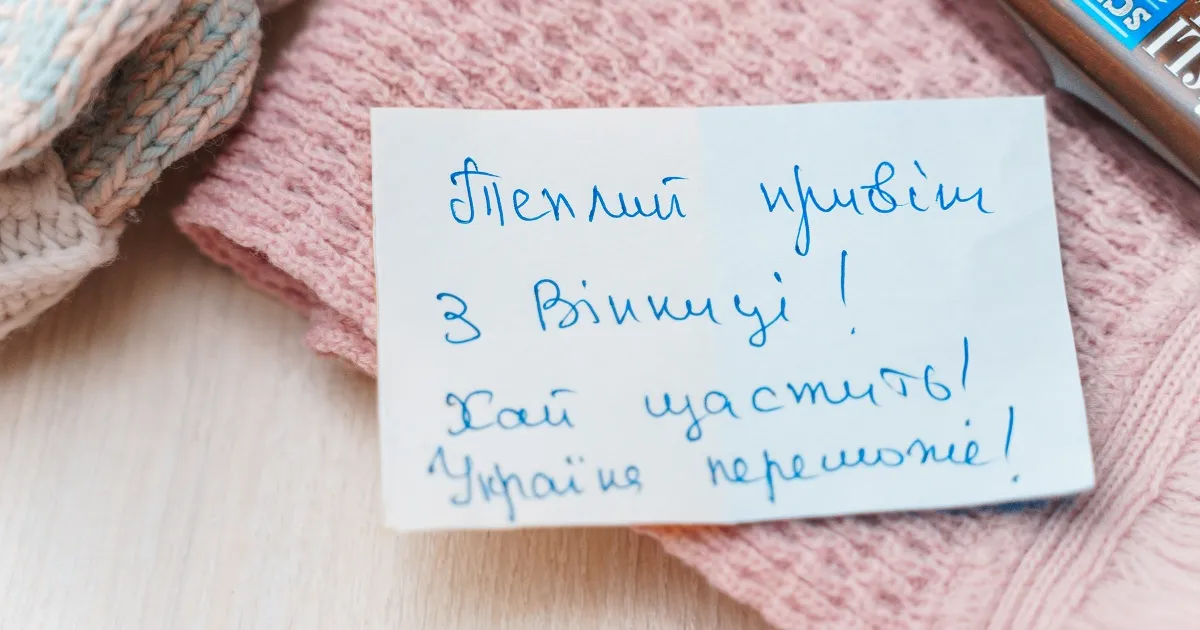 Теплий привіт
з Вінниці!
Хай щастить!
Україна переможе!